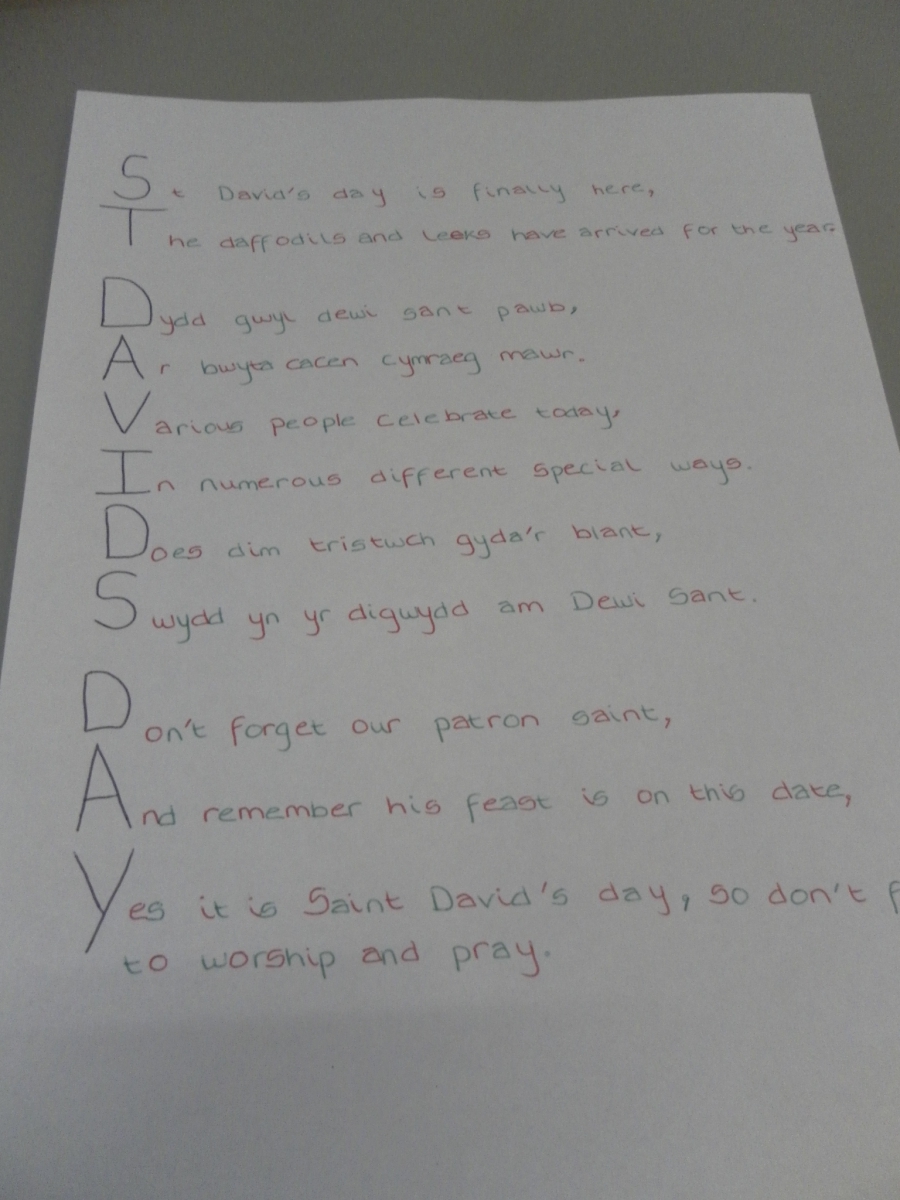 St David's day is finally here,
The daffodils and leeks have arrived for the year.
Dydd gwyl dewi sant pawb,
Ar bwyta cacen cymraeg mawr.
Various people celebrate today,
In numerous different special ways.
Does dim tristwch gyda'r blant,
Swydd yn yr digwydd am Dewi Sant.
Don't forget our patron saint,
And remember his feast is on this date,
Yes it is Saint David's day, so don't
to worship and pray.